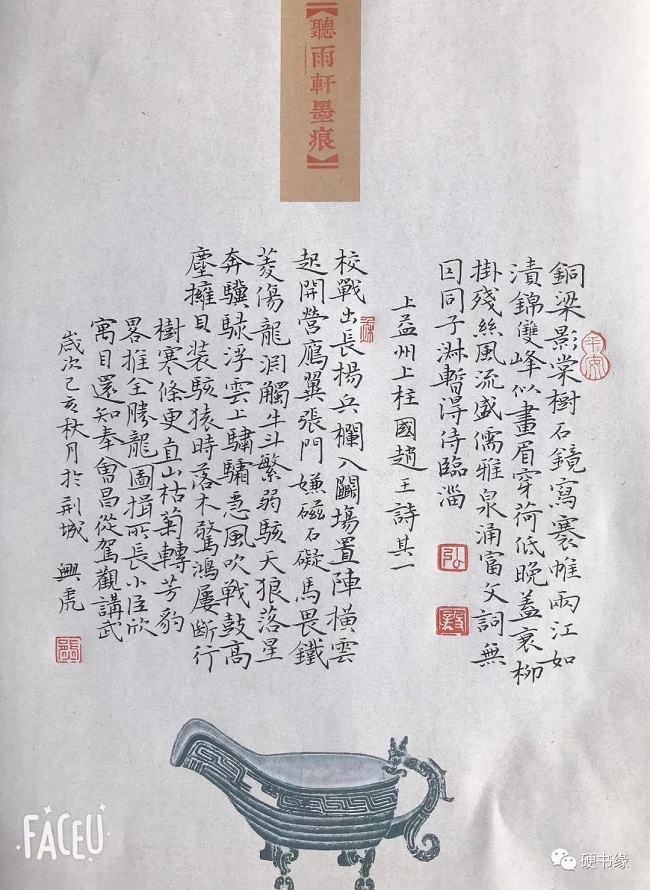 【聽雨軒墨痕】
銅梁影棠樹石鏡寫褰帷兩江如
漬錦雙峰似畫眉穿荷低晚蓋衰柳
掛殘絲風流盛儒雅泉涌富文詞無
囙同子淋暫淂侍臨淄
上益州上柱國趙王詩其一
校戰出長楊兵欄入鬭場置陣橫雲
起開營鴈翼張門嫌磁石礙馬畏鐵
菱傷龍淵觸牛斗繁弱駭天狼落星
奔驥騄浮雲上驌驦急風吹戰鼓高
塵擁貝裝駭猿時落木驚鴻屢斷行
樹寒條更直山枯菊轉芳豹
畧推全勝龍圖揖所長小臣欣
寓目還知奉會昌從駕觀講武
歲次己亥秋月於荊城 興虎
FACEU
硬书缘